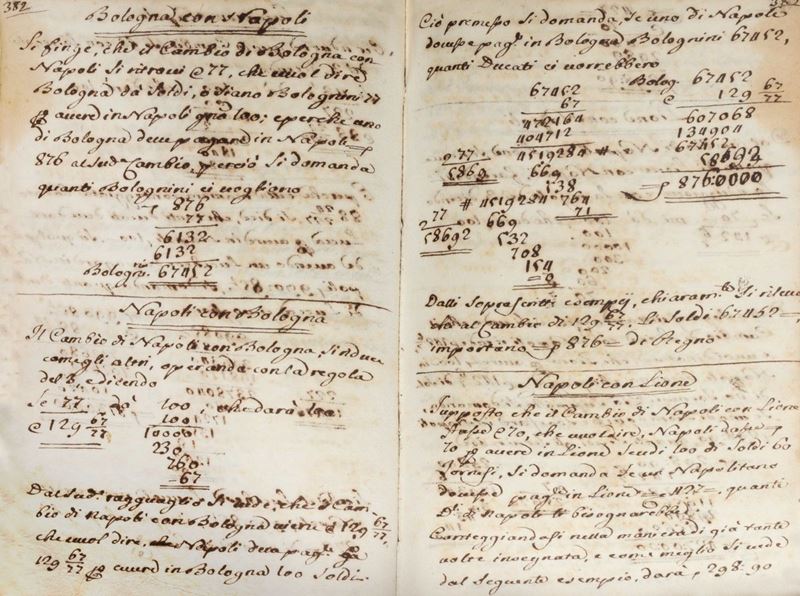 382
Bologna con Napoli
Si finge, che il Cambio di Bologna con
Napoli si ritrovi @ 77, che vuol dire
Bologna dà Soldi, ò siano Bolognini 77
p avere in Napoli 100; e perche uno
di Bologna deve pagare in Napoli
876 al sud.º Cambio, perciò si domanda
quanti Bolognini ci vogliono
876
77
6132
6132
Bologni. 67452
Napoli con Bologna
Il Cambio di Napoli con Bologna, si deduce
come gli altri, operando con la regola
del 3, e dicendo
Se 77 dà 100; che darà 100
@ 129 67/77
100
10000
230
760
67
Dal sud.º ragguaglio si vede, che il Cam-
bio di Napoli con Bologna viene à 129 67/77
che vuol dire, Napoli deve pag.e
129 67/77 p avere in Bologna 100 Soldi.
382
Ciò premesso si domanda, se uno di Napoli
dovesse pag.e in Bologna Bolognini 67452,
quanti Ducati ci vorrebbero
67452
67
472164
404712
4519284 #
77
5869
669
538
# 4519284 764
71
77
58692
669
532
708
154
0
Bolog. 67452
@ 129 67/77
607068
134904
67452
58692
876:0000
Dalli soprascritti esempij, chiaram.te si rileva
che al Cambio di 129 67/77 Li Soldi 67452
importano 876 di Regno
Napoli con Lione
Supposto che il Cambio di Napoli con Lione
@ 70, che vuol dire, Napoli dasse
70 p avere in Lione Scudi 100 di Soldi 60
Tornesi, si domanda se un Napolitano
dovesse pag.e in Lione 427 quante
D.i di Napoli li bisognarebbe
Conteggiandosi nella maniera di già tante
volte insegnata, e come meglio si vede
dal seguente esempio, darà 298:90